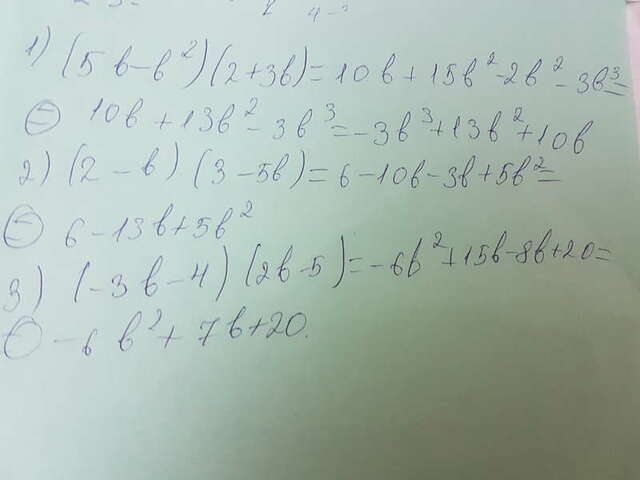 1) (5b-b²)(2+3b)=10b+15b²-2b²-3b³=
= 10b+13b²-3b³=-3b³+13b²+10b
2) (2-b)(3-5b)=6-10b-3b+5b²=
= 6-13b+5b²
3) (-3b-4)(2b-5)=-6b²+15b-8b+20=
= -6b²+7b+20.